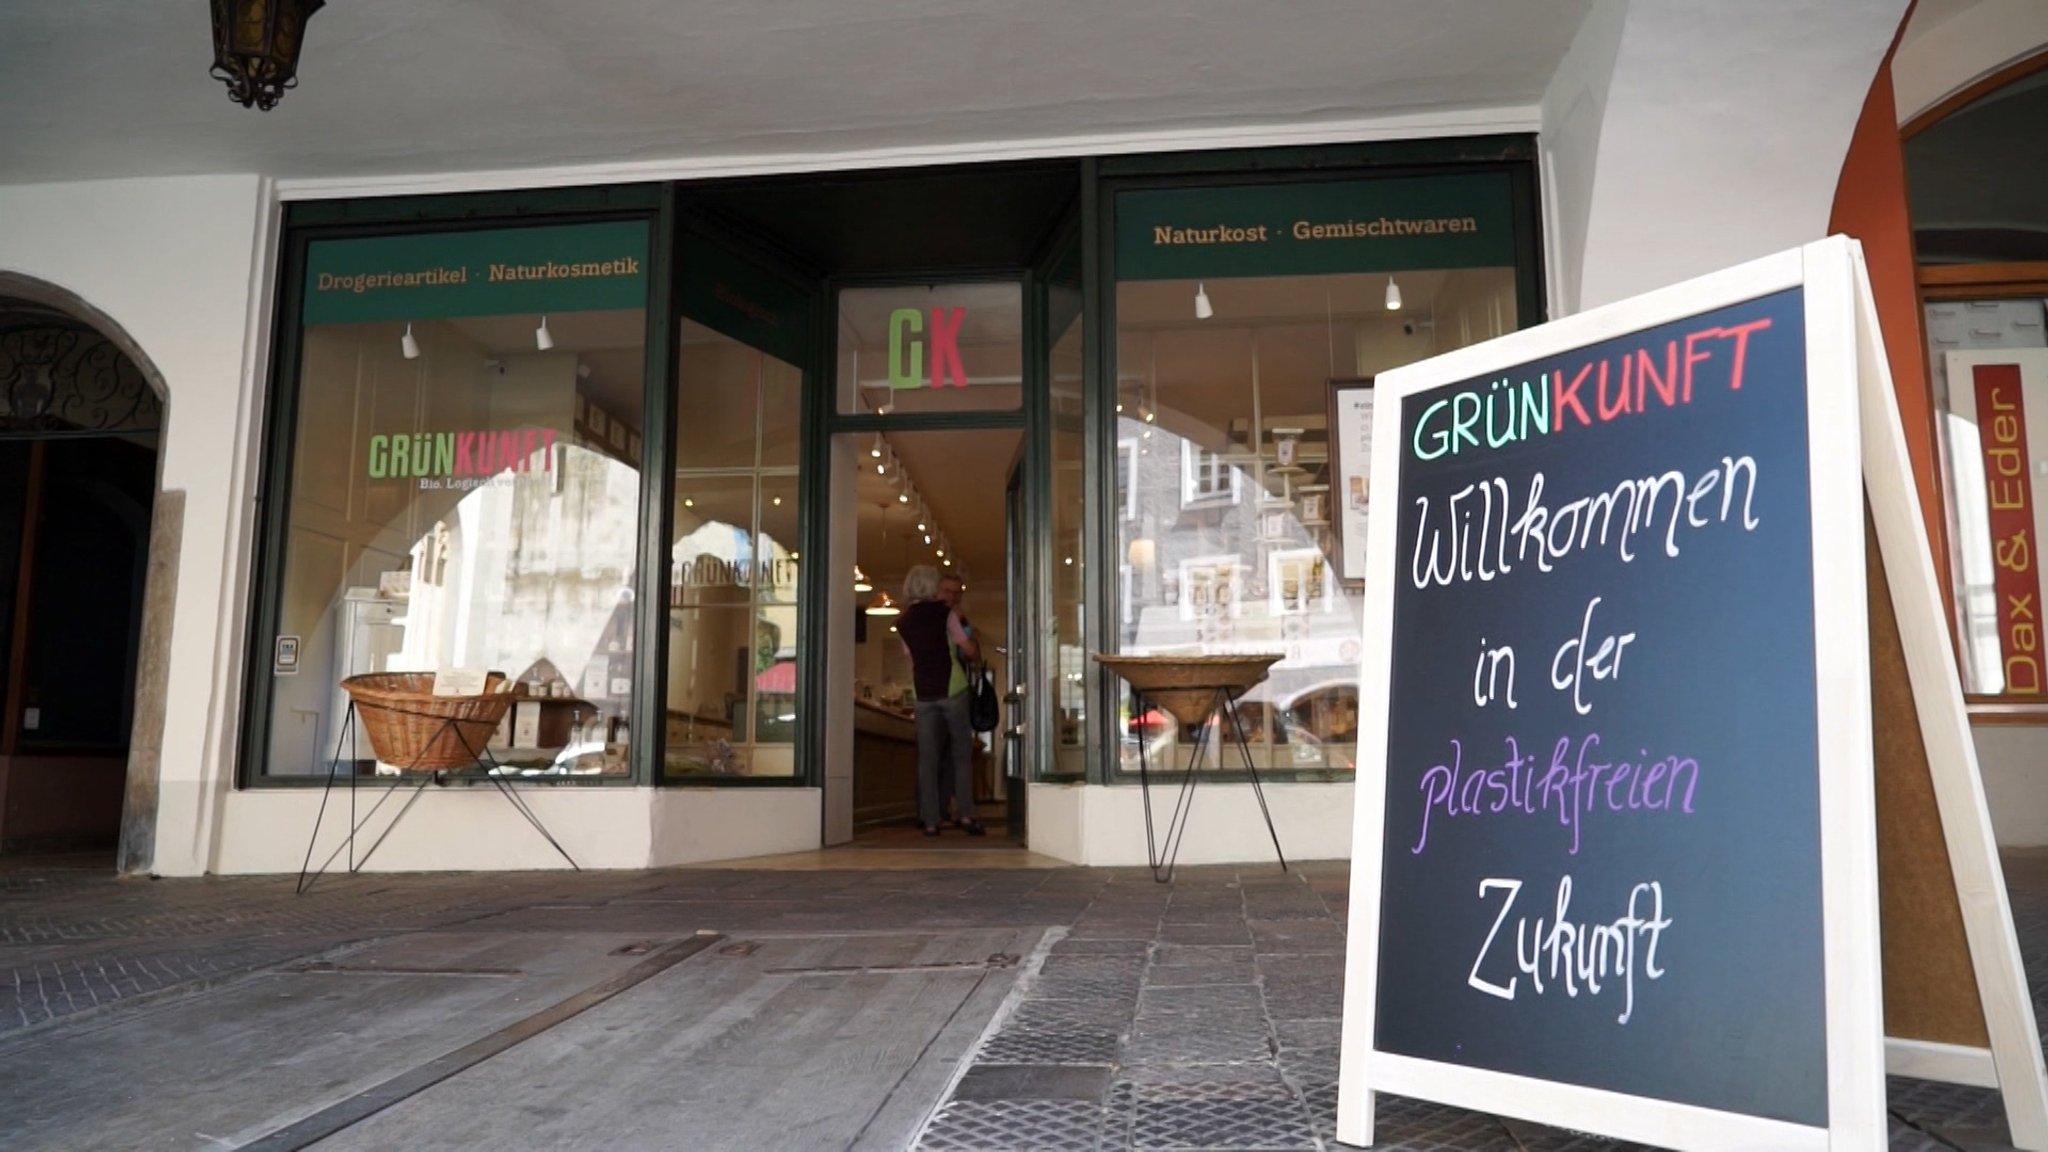 Drogerieartikel · Naturkosmetik
Naturkost · Gemischtwaren
GK
GRÜNKUNFT
Bio. Logisch
GRÜNKUNFT
GRÜNKUNFT
Willkommen
in der
plastikfreien
Zukunft
Dax & Eder